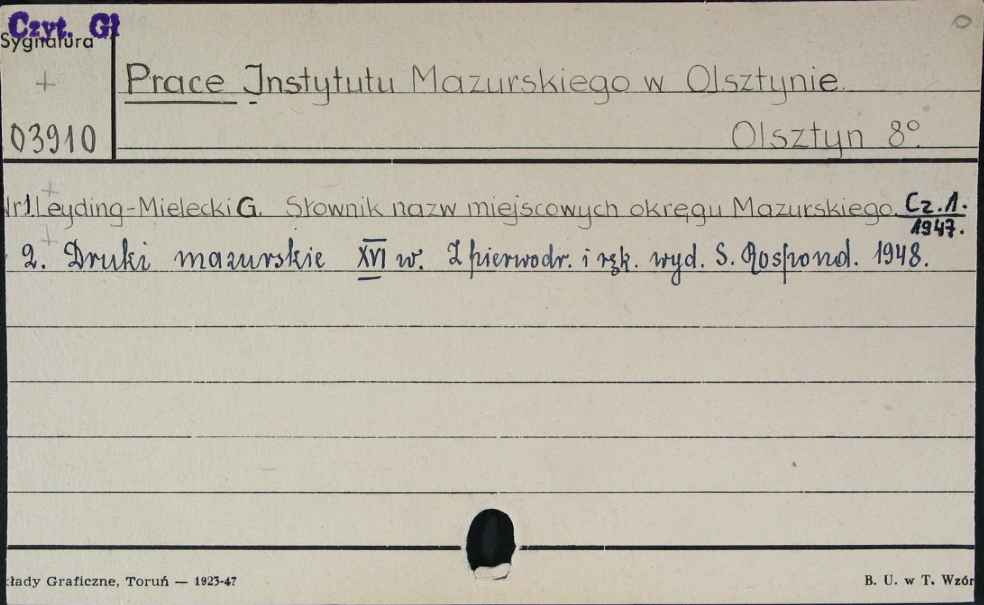 Czyt. Gł
Sygnatura
+
Prace Instytutu Mazurskiego w Olsztynie.
03910
Olsztyn 8°.
Nr1 Leyding-Mielecki G. Słownik nazw miejscowych okręgu Mazurskiego. Cz. 1.
1947.
2. Druki mazurskie XVI w. Z pierwodr. i ręk. wyd. S. Rospond. 1948.
kłady Graficzne, Toruń — 1923-47
B. U. w T. Wzór